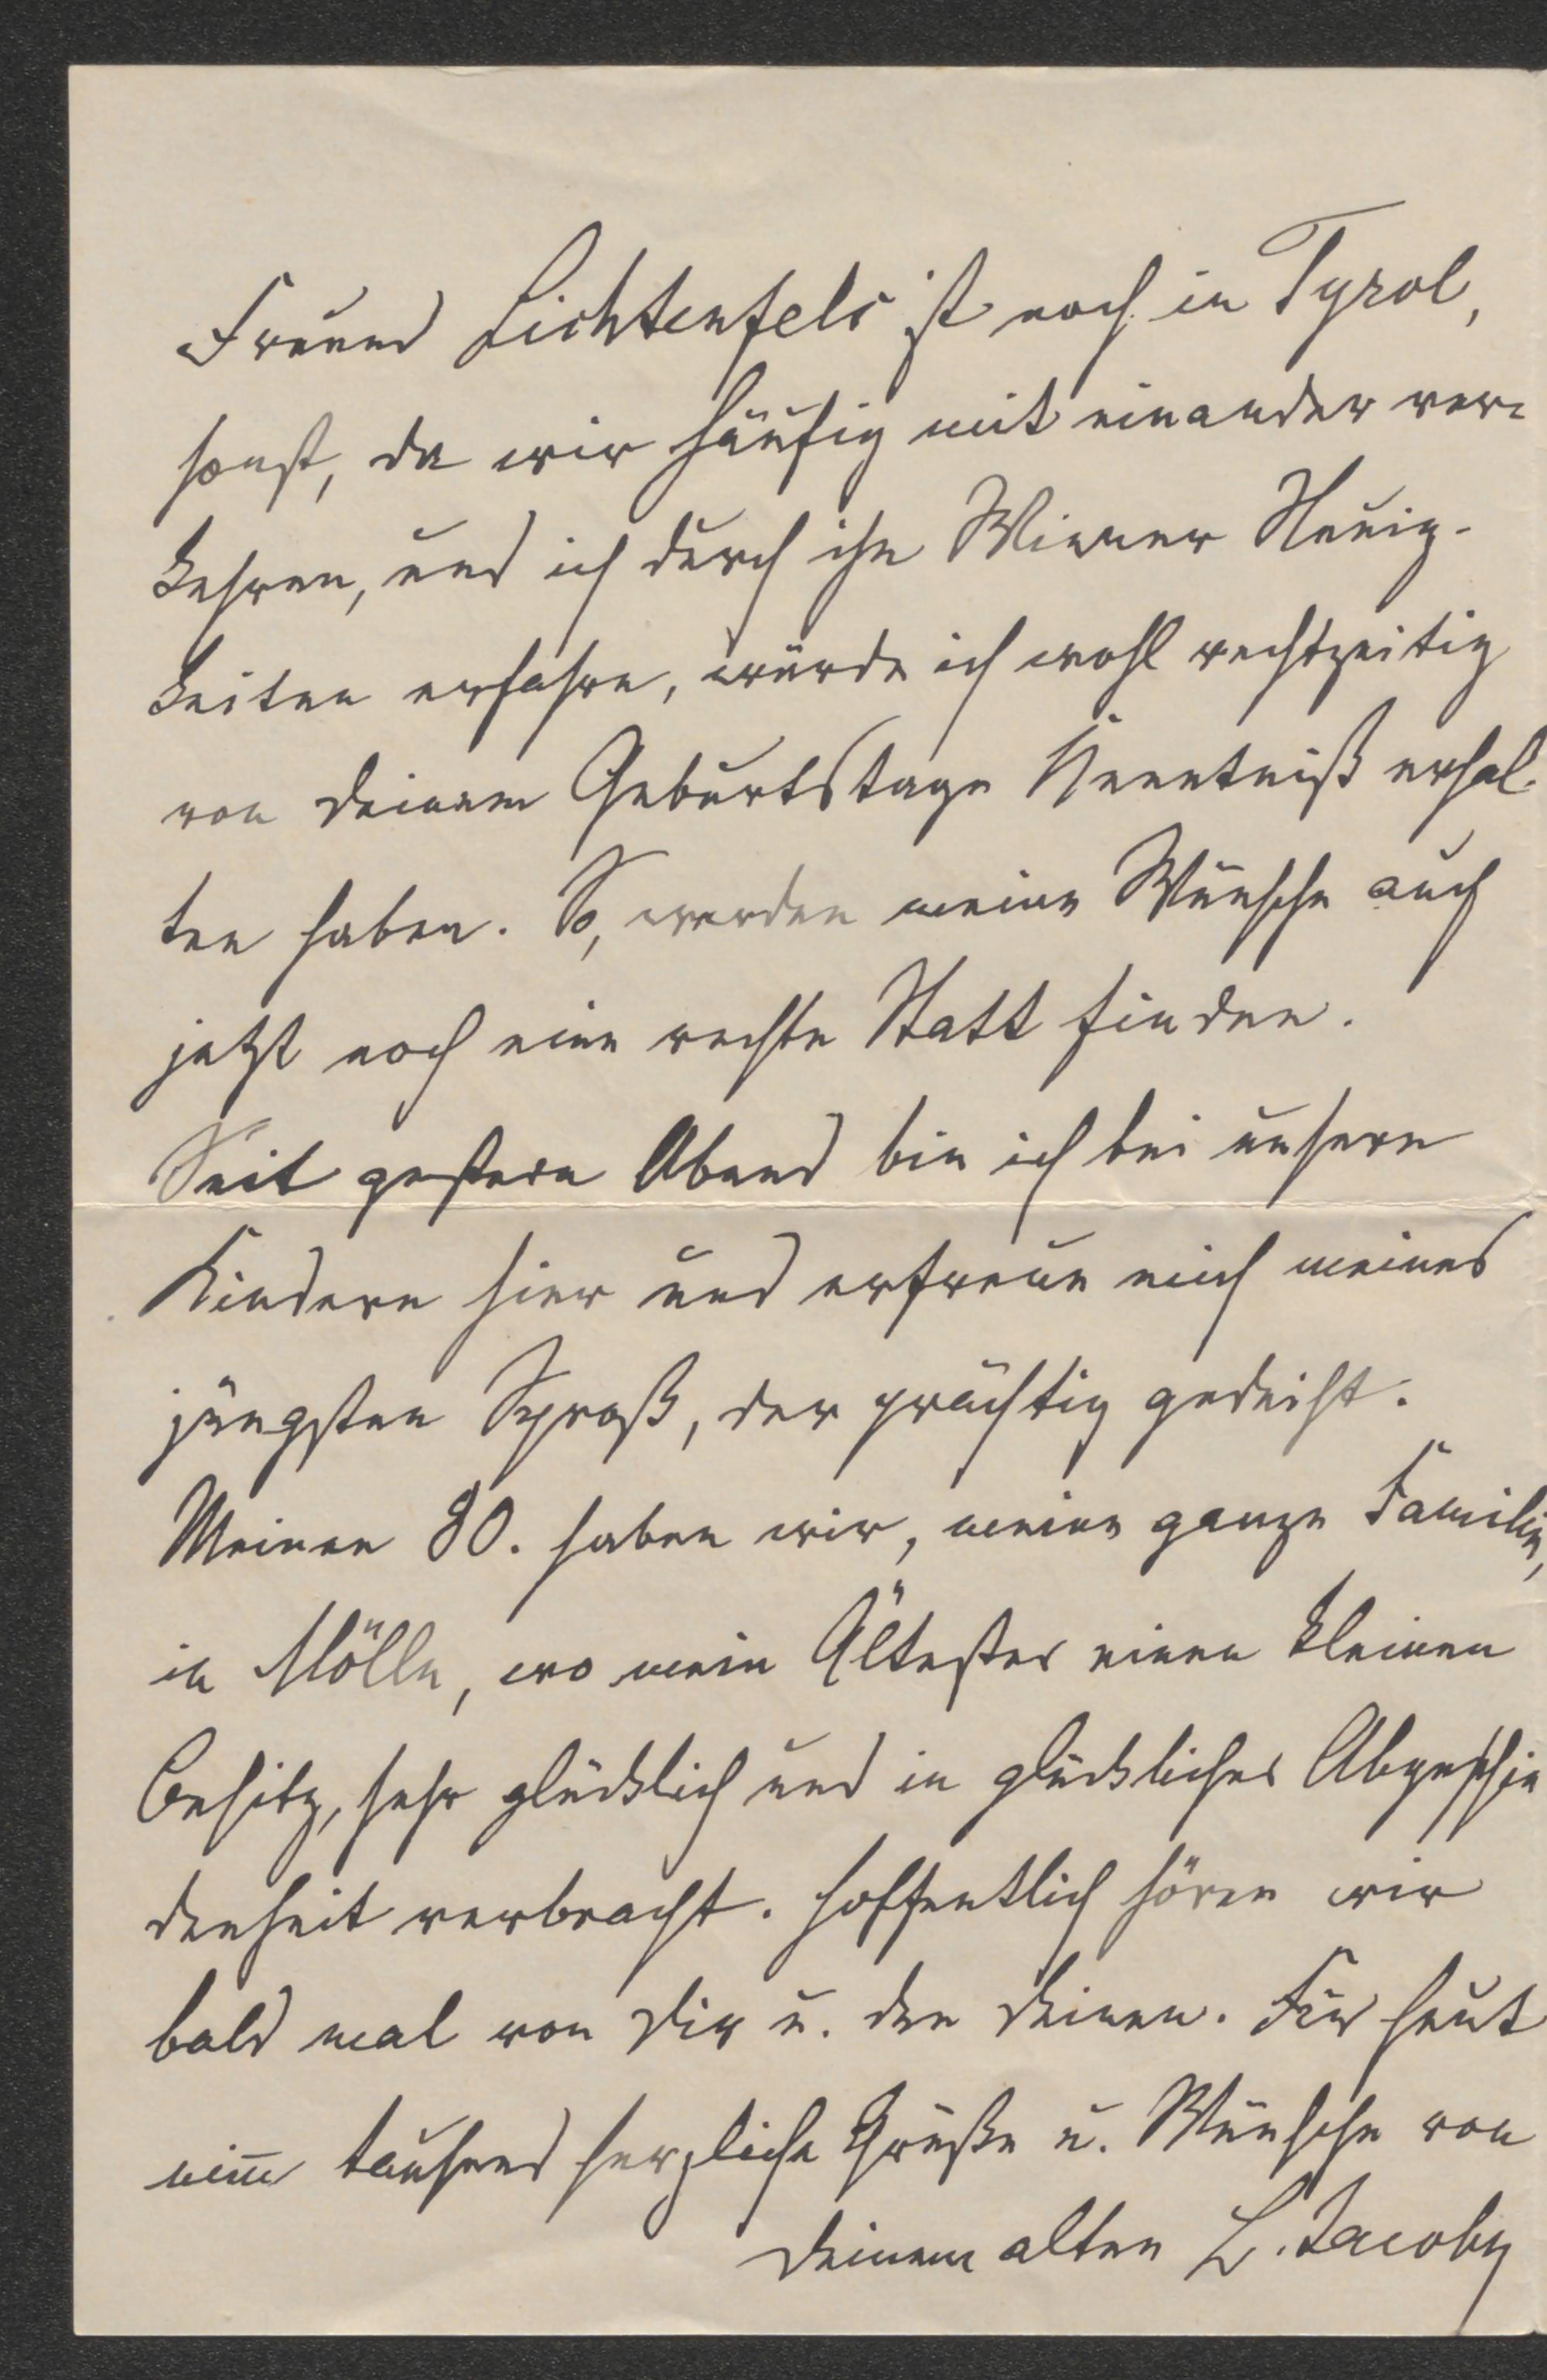 Freund Lichtenfels ist noch in Tyrol,
sonst, da wir häufig mit einander ver-
kehren, und ich durch ihn Wiener Neuig-
keiten erfahre, würde ich wohl rechtzeitig
von Deinem Geburtstage Kenntniß erhal-
ten haben. So, werden meine Wünsche auch
jetzt noch eine rechte Statt finden.
Seit gestern Abend bin ich bei unsern
Kindern hier und erfreue mich meines
jüngsten Sproß, der prächtig gedeiht.
Meinen 80. haben wir, meine ganze Familie,
in Mölln, wo mein Ältester einen kleinen
Besitz, sehr glücklich und in glücklicher Abgeschie
denheit verbracht. Hoffentlich hören wir
bald mal von Dir u. den Deinen. Für heut
nim̅ tausend herzliche Grüße u. Wünsche von
Deinem alten L. Jacoby